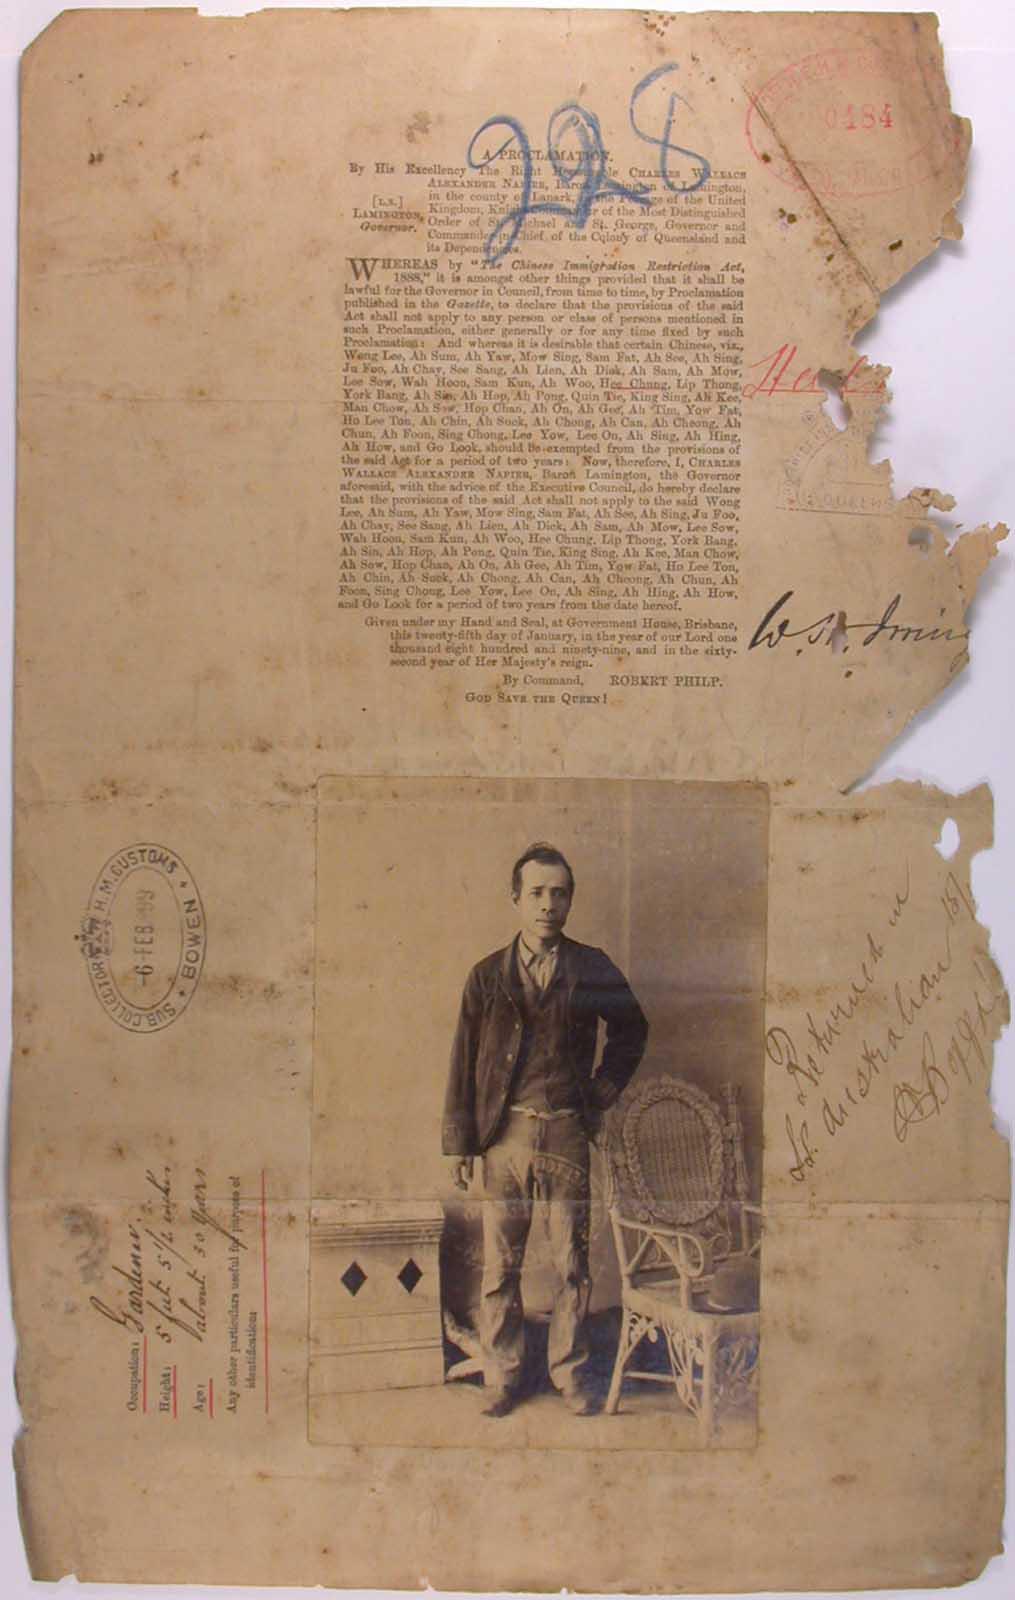 228
0484
A PROCLAMATION.
By His Excellency The Right Honourable CHARLES WALLACE
ALEXANDER NAPIER, Baron Lamington of Lamington,
in the county of Lanark, in the Peerage of the United
Kingdom, Knight Commander of the Most Distinguished
Order of St. Michael and St. George, Governor and
Commander-in-Chief of the Colony of Queensland and
its Dependencies.
[L.S.]
LAMINGTON,
Governor.
WHEREAS by "The Chinese Immigration Restriction Act,
1888," it is amongst other things provided that it shall be
lawful for the Governor in Council, from time to time, by Proclamation
published in the Gazette, to declare that the provisions of the said
Act shall not apply to any person or class of persons mentioned in
such Proclamation, either generally or for any time fixed by such
Proclamation: And whereas it is desirable that certain Chinese, viz.,
Wong Lee, Ah Sum, Ah Yaw, Mow Sing, Sam Fat, Ah See, Ah Sing,
Ju Foo, Ah Chay, See Sang, Ah Lien, Ah Dick, Ah Sam, Ah Mow,
Lee Sow, Wah Hoon, Sam Kun, Ah Woo, Hee Chung, Lip Thong,
York Bang, Ah Sin, Ah Hop, Ah Pong, Quin Tie, King Sing, Ah Kee,
Man Chow, Ah Sow, Hop Chan, Ah On, Ah Gee, Ah Tim, Yow Fat,
Ho Lee Ton, Ah Chin, Ah Suck, Ah Chong, Ah Can, Ah Cheong, Ah
Chun, Ah Foon, Sing Chong, Lee Yow, Lee On, Ah Sing, Ah Hing,
Ah How, and Go Look, should be exempted from the provisions of
the said Act for a period of two years: Now, therefore, I, CHARLES
WALLACE ALEXANDER NAPIER, Baron Lamington, the Governor
aforesaid, with the advice of the Executive Council, do hereby declare
that the provisions of the said Act shall not apply to the said Wong
Lee, Ah Sum, Ah Yaw, Mow Sing, Sam Fat, Ah See, Ah Sing, Ju Foo,
Ah Chay, See Sang, Ah Lien, Ah Dick, Ah Sam, Ah Mow, Lee Sow,
Wah Hoon, Sam Kun, Ah Woo, Hee Chung, Lip Thong, York Bang,
Ah Sin, Ah Hop, Ah Pong, Quin Tie, King Sing, Ah Kee, Man Chow,
Ah Sow, Hop Chan, Ah On, Ah Gee, Ah Tim, Yow Fat, Ho Lee Ton,
Ah Chin, Ah Suck, Ah Chong, Ah Can, Ah Cheong, Ah Chun, Ah
Foon, Sing Chong, Lee Yow, Lee On, Ah Sing, Ah Hing, Ah How,
and Go Look for a period of two years from the date hereof.
Given under my Hand and Seal, at Government House, Brisbane,
this twenty-fifth day of January, in the year of our Lord one
thousand eight hundred and ninety-nine, and in the sixty-
second year of Her Majesty's reign.
By Command, ROBERT PHILP.
GOD SAVE THE QUEEN!
W.
SUB. COLLECTOR H.M. CUSTOMS
BOWEN
-6 FEB 99
Occupation: Gardener
Height: 5 feet 5 1/2 inches
Age: about 30 years
Any other particulars useful for purpose of
identification:
Returned in
Australian